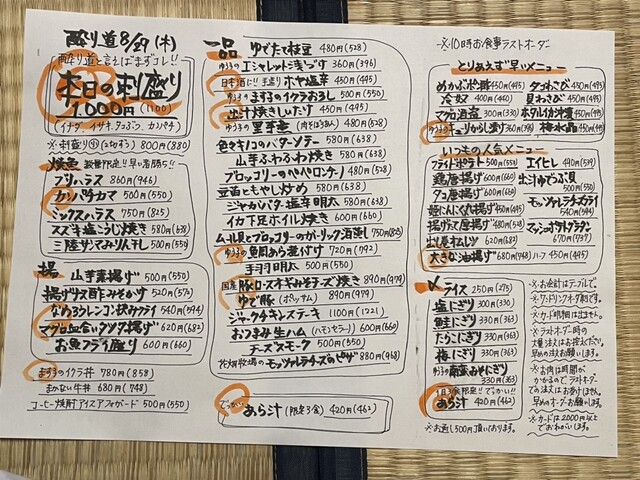 酔り道 8/29(木)
酔り道と言えばまずコレ!!
本日の刺盛り
1,000円(1100)
(イナダ イサキ カンパチ)
800(880)
焼魚 数量限定!! 早い者勝ち!!
ブリハラス 860円(946)
カンパチカマ 500円(550)
ミックスハラス 750円(825)
スズキ塩こうじ焼き 580円(638)
三陸サンマみりん干し 500円(550)
揚
山芋素揚げ 500円(550)
揚げナス酢みそかけ 520円(572)
なめろうレンコン挟みフライ 540円(594)
マグロ血合いタツタ揚げ 620円(682)
お魚フライ盛り 600円(660)
ますのイクラ丼 780円(858)
まかない牛丼 680円(748)
コーヒー焼酎アイスアフォガード 500円(550)
一品
ゆでたて枝豆 480円(528)
エシャレット浅づけ 360円(396)
日本酒に!! 手造り ホヤ塩辛 450円(495)
まするのイクラおろし 500円(550)
出汁焼きしいたけ 450円(495)
里芋煮 (肉そぼろあん) 480円(528)
色々キノコのバターソテー 580円(638)
山芋ふわふわ焼き 580円(638)
ブロッコリーのペペロンチーノ 480円(528)
豆苗ともやし炒め 580円(638)
ジャガバター塩辛明太 580円(638)
イカ下足ホイル焼き 600円(660)
ムール貝とブロッコリーのガーリック酒蒸し 750円(825)
魚肉あら煮付け 720円(792)
手羽明太 500円(550)
国産 豚ロースオギみそチーズ焼き 890円(979)
ゆで豚(ポッサム) 890円(979)
ジャークチキンステーキ 1100円(1221)
おつまみ生ハム(ハモンセラーノ) 600円(660)
チーズスモーク 500円(550)
花畑牧場のモッツァレラチーズのピザ 880円(968)
でっかい あら汁 (限定3食) 420円(462)
※10時お食事ラストオーダー
とりあえず早いメニュー
めかぶポン酢 450円(495) タコわさび 450円(495)
冷奴 400円(440) 貝わさび 450円(495)
マグロ酒盗 300円(330) ホタルイカ沖漬 450円(495)
キューリからし漬 360円(396) 梅水晶 450円(495)
いつもの人気メニュー
フライドポテト 500円(550) エイヒレ 490円(539)
鶏唐揚げ 600円(660) 出汁ゆでつぶ貝
500円(550)
タコ唐揚げ 600円(660) モッツァレラチーズフライ
540円(594)
450円(495)
480円(528)
670円(737)
出し巻玉子 620円(682)
大きな油揚げ 680円(748) ハーフ 450円(495)
〆 ライス 250円(275)
塩にぎり 300円(330)
鮭にぎり 330円(363)
たらこにぎり 330円(363)
梅にぎり 330円(363)
南蛮みそにぎり
330円(363)
1日3食限定!! でっかい!!
あら汁 420円(462)
※お通し500円頂いております。
※お会計はテーブルで。
※ワンドリンクオーダー制です。
※カード明細は出ません。
※ラストオーダー時の
大量注文はお控え下さい。
早めの注文お願いします。
※お肉は時間が
かかるのでラストオーダー
での注文はお受けません。
早めのオーダーお願いします。
※カードは2000円以上
でおねがいします。